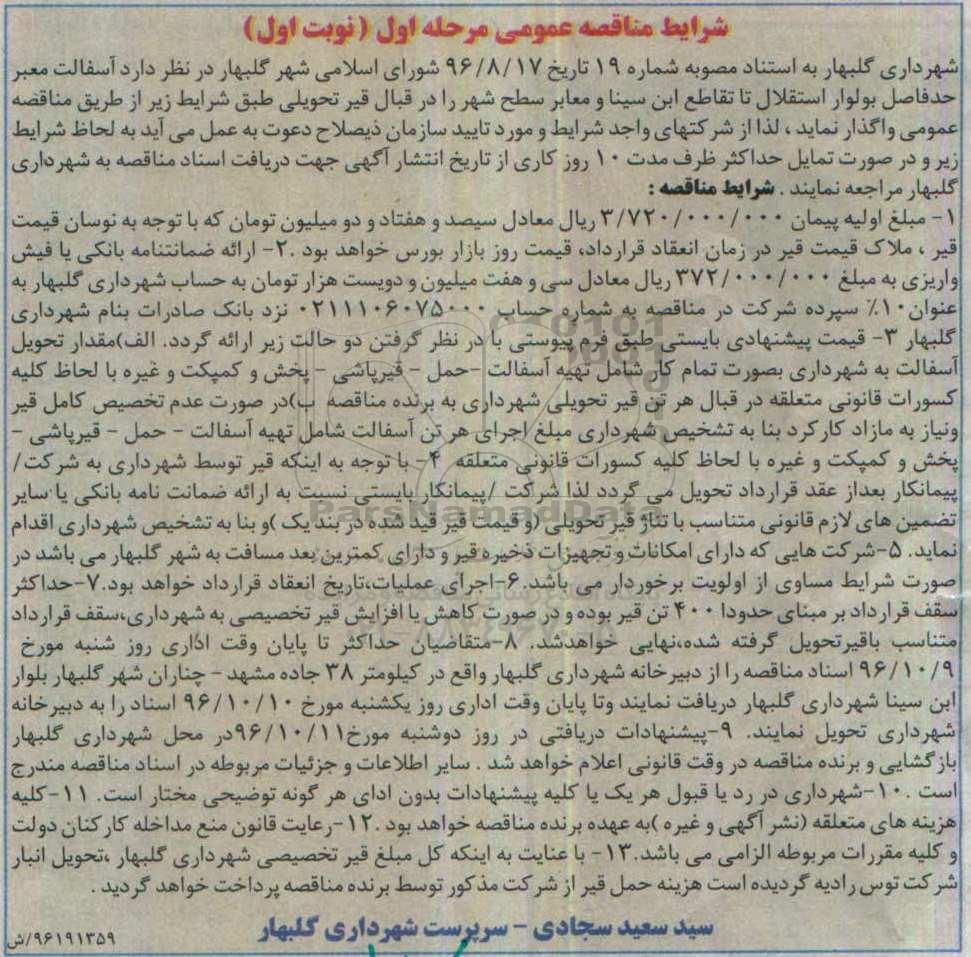 شرایط مناقصه عمومی مرحله اول (نوبت اول)
شهرداری گلبهار به استناد مصوبه شماره ۱۹ تاریخ ۹۶/۸/۱۷ شورای اسلامی شهر گلبهار در نظر دارد آسفالت معبر
حدفاصل بولوار استقلال تا تقاطع ابن سینا و معابر سطح شهر را در قبال قیر تحویلی طبق شرایط زیر از طریق مناقصه
عمومی واگذار نماید ، لذا از شرکتهای واجد شرایط و مورد تایید سازمان ذیصلاح دعوت به عمل می آید به لحاظ شرایط
زیر و در صورت تمایل حداکثر ظرف مدت ۱۰ روز کاری از تاریخ انتشار آگهی جهت دریافت اسناد مناقصه به شهرداری
گلبهار مراجعه نمایند . شرایط مناقصه :
۱- مبلغ اولیه پیمان ۳/۷۲۰/۰۰۰/۰۰۰ ریال معادل سیصد و هفتاد و دو میلیون تومان که با توجه به نوسان قیمت
قیر ، ملاک قیمت قیر در زمان انعقاد قرارداد، قیمت روز بازار بورس خواهد بود .۲- ارائه ضمانتنامه بانکی یا فیش
واریزی به مبلغ ۳۷۲/۰۰۰/۰۰۰ ریال معادل سی و هفت میلیون و دویست هزار تومان به حساب شهرداری گلبهار به
عنوان ۱۰٪ سپرده شرکت در مناقصه به شماره حساب ۰۲۱۱۱۰۶۰۷۵۰۰۰ نزد بانک صادرات بنام شهرداری
گلبهار ۳- قیمت پیشنهادی بایستی طبق فرم پیوستی با در نظر گرفتن دو حالت زیر ارائه گردد. الف)مقدار تحویل
آسفالت به شهرداری بصورت تمام کار شامل تهیه آسفالت -حمل - قیرپاشی - پخش و کمپکت و غیره با لحاظ کلیه
کسورات قانونی متعلقه در قبال هر تن قیر تحویلی شهرداری به برنده مناقصه ب)در صورت عدم تخصیص کامل قیر
ونیاز به مازاد کارکرد بنا به تشخیص شهرداری مبلغ اجرای هر تن آسفالت شامل تهیه آسفالت - حمل - قیرپاشی -
پخش و کمپکت و غیره با لحاظ کلیه کسورات قانونی متعلقه ۴- با توجه به اینکه قیر توسط شهرداری به شرکت/
پیمانکار بعداز عقد قرارداد تحویل می گردد لذا شرکت /پیمانکار بایستی نسبت به ارائه ضمانت نامه بانکی یا سایر
تضمین های لازم قانونی متناسب با تناژ قیر تحویلی (و قیمت قیر قید شده در بند یک )و بنا به تشخیص شهرداری اقدام
نماید. ۵-شرکت هایی که دارای امکانات و تجهیزات ذخیره قیر و دارای کمترین بعد مسافت به شهر گلبهار می باشد در
صورت شرایط مساوی از اولویت برخوردار می باشد.۶-اجرای عملیات،تاریخ انعقاد قرارداد خواهد بود.۷-حداکثر
سقف قرارداد بر مبنای حدودا ۴۰۰ تن قیر بوده و در صورت کاهش یا افزایش قیر تخصیصی به شهرداری،سقف قرارداد
متناسب باقیرتحویل گرفته شده،نهایی خواهدشد. ۸-متقاضیان حداکثر تا پایان وقت اداری روز شنبه مورخ
۹۶/۱۰/۹ اسناد مناقصه را از دبیرخانه شهرداری گلبهار واقع در کیلومتر ۳۸ جاده مشهد - چناران شهر گلبهار بلوار
ابن سینا شهرداری گلبهار دریافت نمایند وتا پایان وقت اداری روز یکشنبه مورخ ۹۶/۱۰/۱۰ اسناد را به دبیرخانه
شهرداری تحویل نمایند. ۹-پیشنهادات دریافتی در روز دوشنبه مورخ۹۶/۱۰/۱۱در محل شهرداری گلبهار
بازگشایی و برنده مناقصه در وقت قانونی اعلام خواهد شد . سایر اطلاعات و جزئیات مربوطه در اسناد مناقصه مندرج
است .۱۰-شهرداری در رد یا قبول هر یک یا کلیه پیشنهادات بدون ادای هر گونه توضیحی مختار است. ۱۱-کلیه
هزینه های متعلقه (نشر آگهی و غیره )به عهده برنده مناقصه خواهد بود .۱۲-رعایت قانون منع مداخله کارکنان دولت
و کلیه مقررات مربوطه الزامی می باشد.۱۳- با عنایت به اینکه کل مبلغ قیر تخصیصی شهرداری گلبهار ،تحویل انبار
شرکت توس رادیه گردیده است هزینه حمل قیر از شرکت مذکور توسط برنده مناقصه پرداخت خواهد گردید .
سید سعید سجادی - سرپرست شهرداری گلبهار
۹۶۱۹۱۳۵۹/ش
ParsNamadData